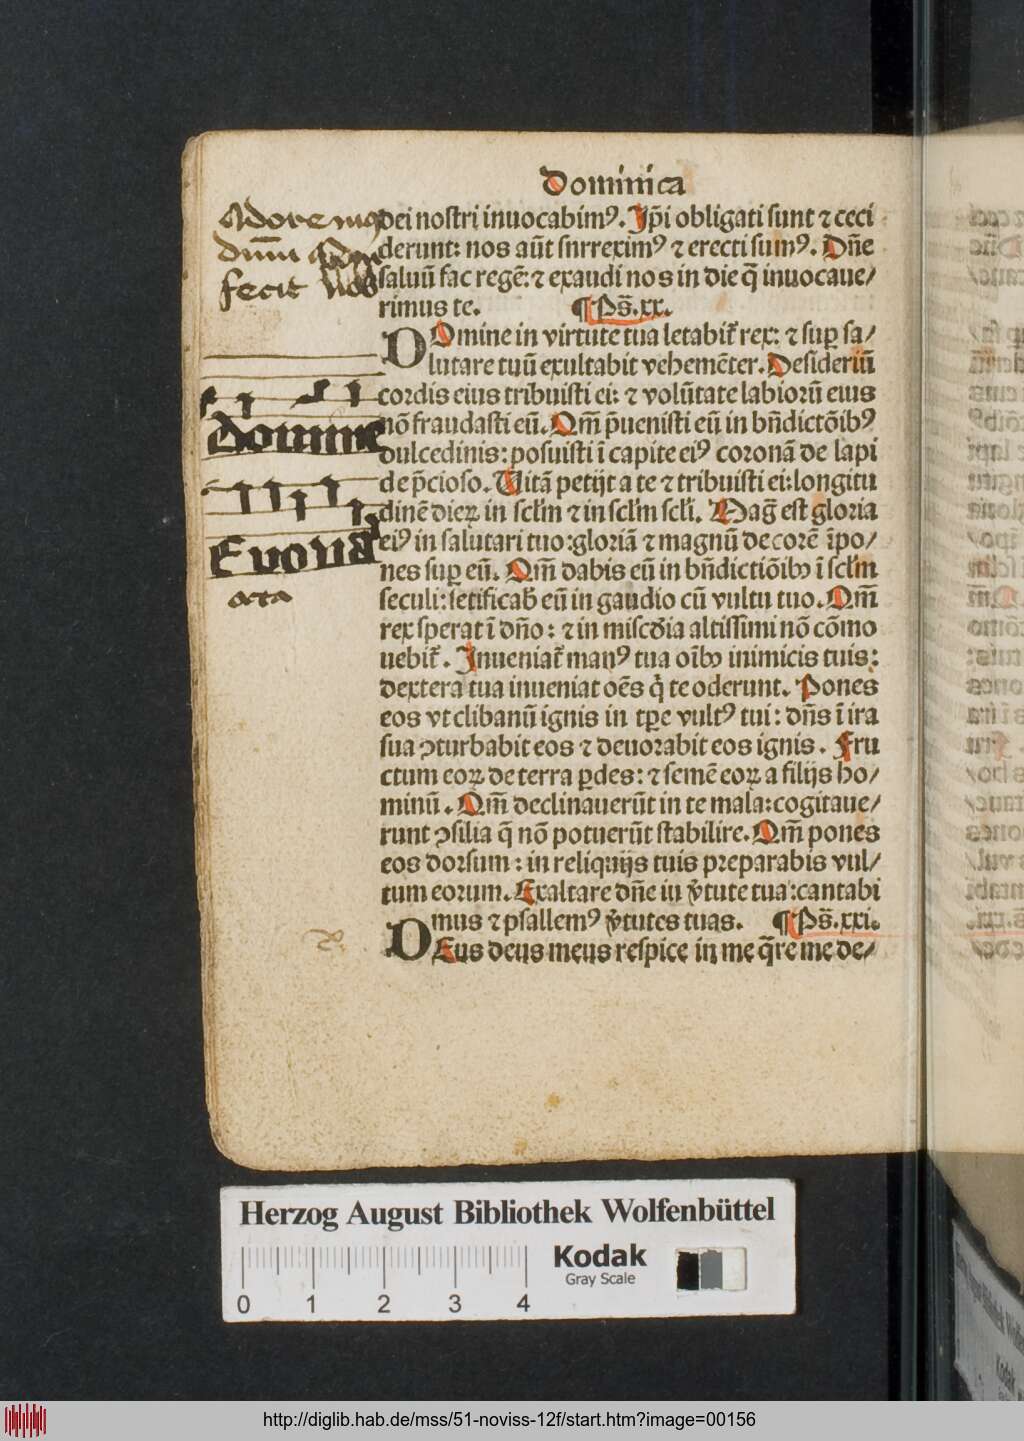 Dominica
Adoremus
dnm̄ qui
fecit nos
dei nostri inuocabimꝰ. Ip̄i obligati sunt ⁊ ceci
derunt: nos aūt surreximꝰ ⁊ erecti sumꝰ. Dn̄e
saluū fac regē: ⁊ exaudi nos in die q̄ inuocaue/
rimus te. ¶ Ps̄. xx.
DOmine in virtute tua letabit᷑ rex: ⁊ suꝑ sa/
lutare tuū exultabit vehemēter. Desideriū
cordis eius tribuisti ei: ⁊ volūtate labiorū eius
nō fraudasti eū. Qm̄ p̄uenisti eū in bn̄dictōibꝰ
dulcedinis: posuisti ī capite eiꝰ coronā de lapi
de p̄cioso. Uitā petijt a te ⁊ tribuisti ei: longitu
dinē dieꝝ in scl̄m ⁊ in scl̄m scl̄i. Maḡ est gloria
eiꝰ in salutari tuo: gloriā ⁊ magnū decorē īpo/
nes suꝑ eū. Qm̄ dabis eū in bn̄dictiōibꝫ ī scl̄m
seculi: letificab̄ eū in gaudio cū vultu tuo. Qm̄
rex sperat ī dn̄o: ⁊ in mis̄cdia altissimi nō cōmo
uebit᷑. Inueniat᷑ manꝰ tua oībꝫ inimicis tuis:
dextera tua inueniat oēs q̇ te oderunt. Pones
eos vt clibanū ignis in tꝑe vultꝰ tui: dn̄s ī ira
sua ꝯturbabit eos ⁊ deuorabit eos ignis. Fru
ctum eoꝝ de terra ꝑdes: ⁊ semē eoꝝ a filijs ho/
minū. Qm̄ declinauerūt in te mala: cogitaue/
runt ꝯsilia q̄ nō potuerūt stabilire. Qm̄ pones
eos dorsum: in reliquijs tuis preparabis vul/
tum eorum. Exaltare dn̄e iu v̄tute tua: cantabi
mus ⁊ psallemꝰ v̄tutes tuas. ¶ Ps̄. xxi.
DEus deus meus respice in me q̄re me de/
Domine
Euoua
Herzog August Bibliothek Wolfenbüttel
Kodak
Gray Scale
0 1 2 3 4
http://diglib.hab.de/mss/51-noviss-12f/start.htm?image=00156